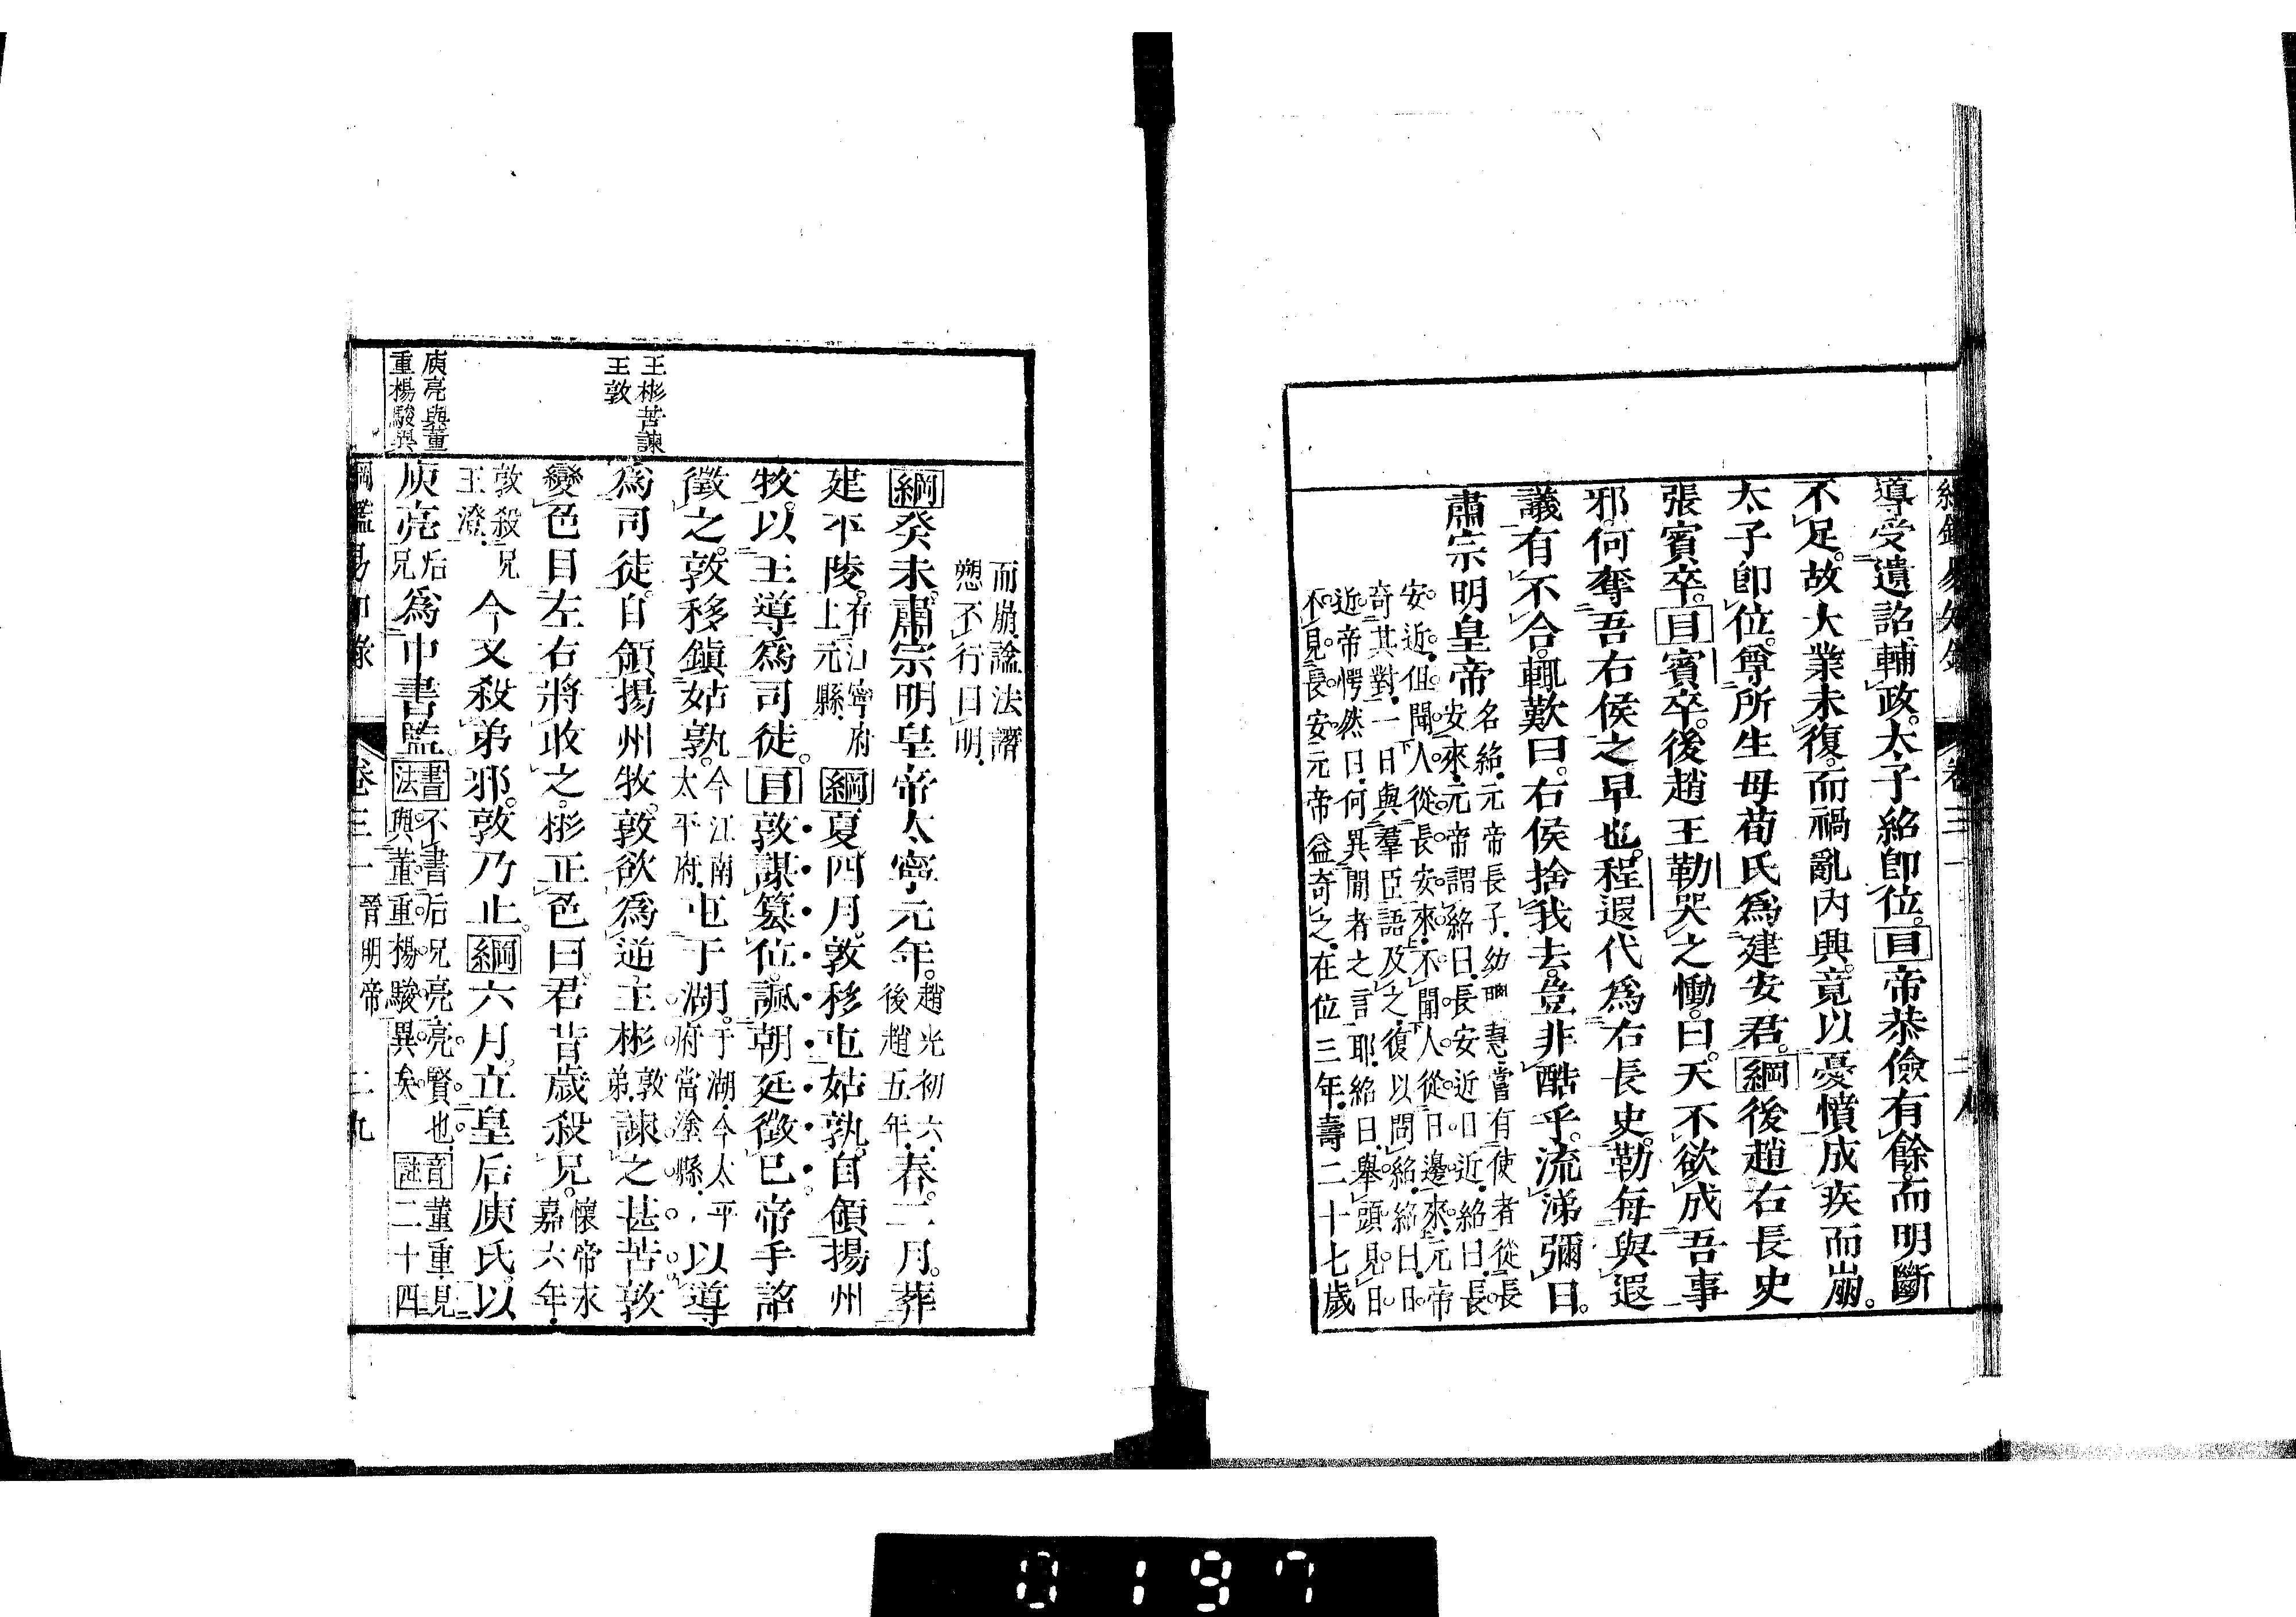 導受遺詔輔政。太子紹卽位。目帝恭儉有餘。而明斷
不足。故大業未復。而禍亂內興。竟以憂憤成疾而崩。
太子卽位。尊所生母荀氏爲建安君。綱後趙右長史
張賓卒。目賓卒。後趙王勒哭之慟。曰。天不欲成吾事
邪。何奪吾右侯之早也。程遐代爲右長史。勒每與遐
議有不合。輒歎曰。右侯捨我去。豈非酷乎。流涕彌日。
肅宗明皇帝
名紹。元帝長子。幼聰慧。嘗有使者從長
安來。元帝謂紹曰。長安近日近。紹曰。長
安近。但聞人從長安來。不聞人從日邊來。元帝
奇其對。一日與羣臣語及之。復以問紹。紹曰。日
近。帝愕然曰。何異間者之言耶。紹曰。舉頭見日
不見長安。元帝益奇之。在位三年。壽二十七歲
而崩。諡法譖
愬不行曰明。
綱癸未。肅宗明皇帝太寧元年。趙光初六。後趙五年。春。二月。葬
建平陵。在江寧府上元縣。綱夏四月。敦移屯姑孰。自領揚州
牧。以王導爲司徒。目敦謀篡位。諷朝廷徵己。帝手詔
徵之。敦移鎭姑孰。今江南太平府。屯于湖。于湖。今太平府當塗縣。以導
爲司徒。自領揚州牧。敦欲爲逆。王彬敦弟。諫之甚苦。敦
變色目左右。將收之。彬正色曰。君昔歲殺兄。懷帝永嘉六年。
敦殺兄王澄。今又殺弟邪。敦乃止。綱六月。立皇后庾氏。以
庾亮后兄爲中書監。書法不書后兄亮。亮賢也。與董重楊駿異矣。音註董重。見二十四
王彬苦諫
王敦
庾亮與董
重楊駿異
綱鑑易知錄 卷三一 晉明帝 二九